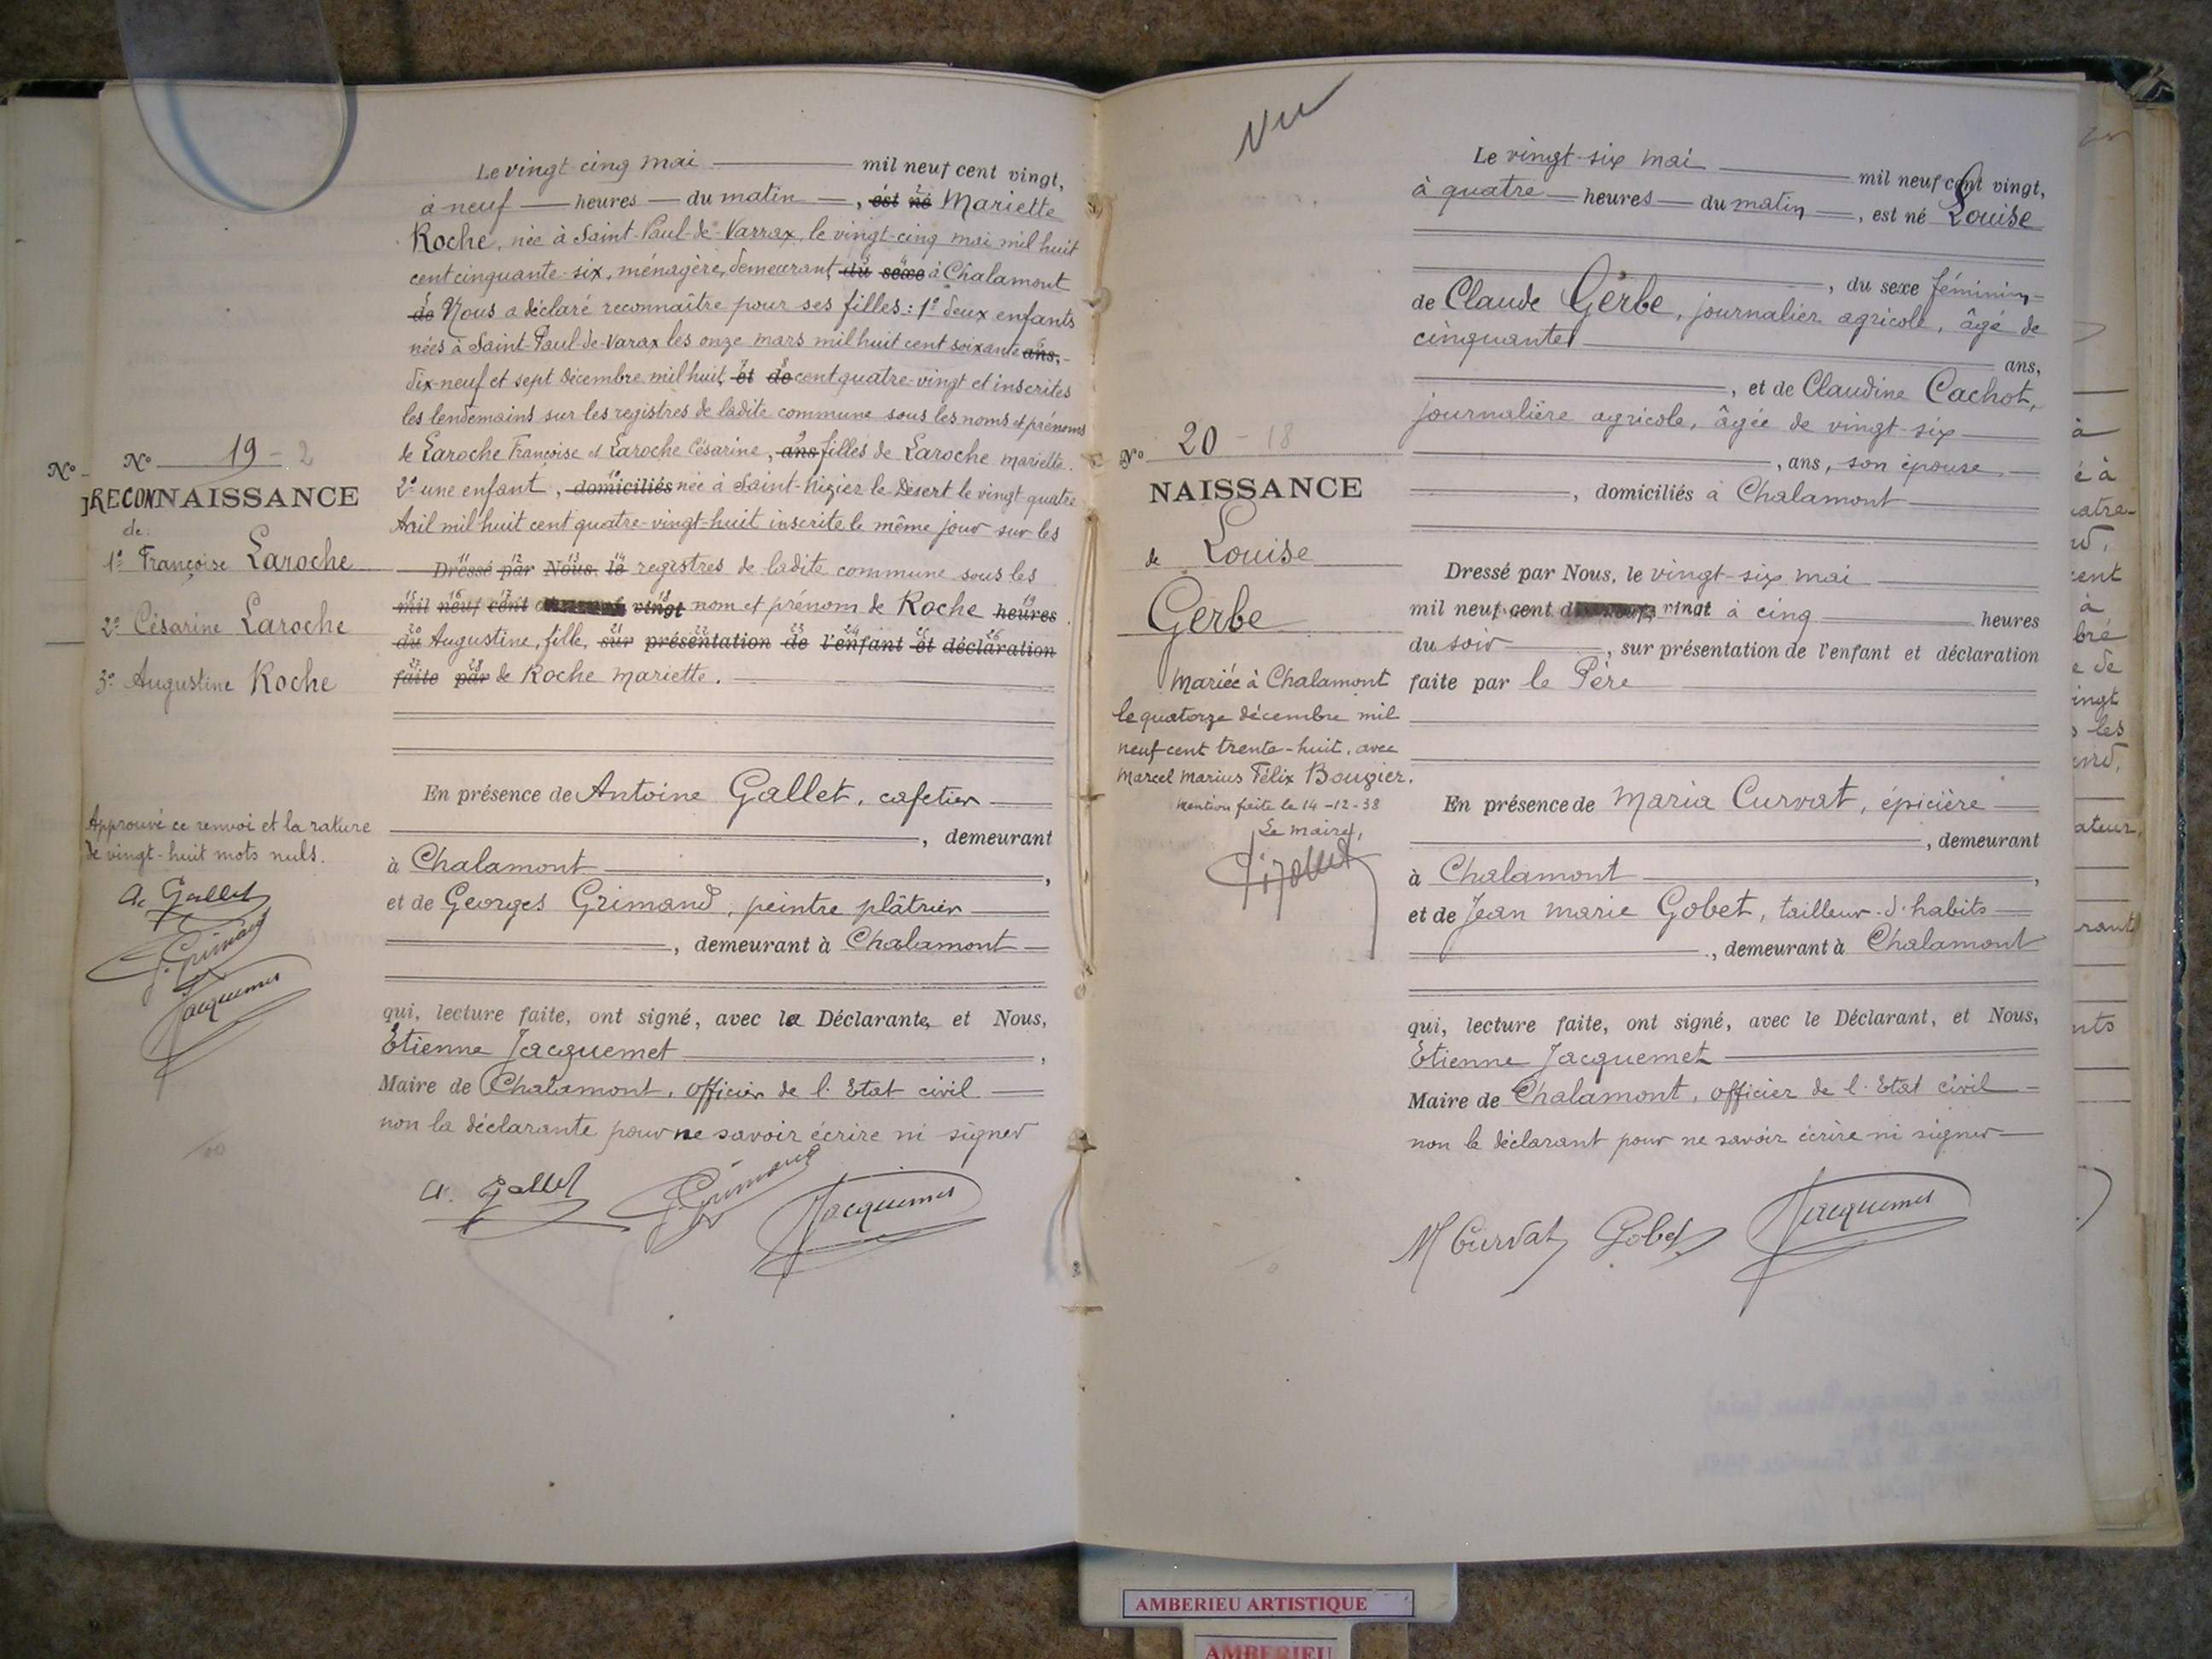 Le vingt-cinq mai mil neuf cent vingt,
à neuf heures du matin, est né Mariette
Roche, née à Saint-Paul-de-Varrax, le vingt-cinq mai mil huit
cent cinquante-six, ménagère, demeurant du sexe à Chalamont
de Nous a déclaré reconnaître pour ses filles : 1º deux enfants
nées à Saint-Paul-de-Varax les onze mars mil huit cent soixante ans,
dix-neuf et sept décembre mil huit et de cent quatre-vingt et inscrites
les lendemains sur les registres de ladite commune sous les noms et prénoms
de Laroche Françoise et Laroche Césarine, ans filles de Laroche mariette.
2º une enfant, domiciliés née à Saint-Nizier-le-Désert le vingt quatre
Avril mil huit cent quatre-vingt-huit inscrite le même jour sur les
Dressé par Nous, le registres de ladite commune sous les
mil neuf cent vingt nom et prénom de Roche heures
du Augustine, fille, sur présentation de l'enfant et déclaration
faite par de Roche Mariette.
En présence de Antoine Gallet, cafetier
, demeurant
à Chalamont,
et de Georges Grimand, peintre plâtrier
, demeurant à Chalamont
qui, lecture faite, ont signé, avec la Déclarante, et Nous,
Etienne Jacquemet,
Maire de Chalamont, officier de l'Etat civil
non la déclarante pour ne savoir écrire ni signer
A. Gallet Grimand Jacquemet
Nº
Nº 19 - 2
RECONNAISSANCE
de
1º Françoise Laroche
2º Césarine Laroche
3º Augustine Roche
Approuvé ce renvoi et la rature
de vingt-huit mots nuls.
A. Gallet
G. Grimand
Jacquemet
Vu
Le vingt-six mai mil neuf cent vingt,
à quatre heures du matin, est né Louise
, du sexe féminin
de Claude Gerbe, journalier agricole, âgé de
cinquante
ans,
, et de Claudine Cachot,
journalière agricole, âgée de vingt-six
, ans, son épouse
, domiciliés à Chalamont
Dressé par Nous, le vingt-six mai
mil neuf cent vingt à cinq heures
du soir, sur présentation de l'enfant et déclaration
faite par le Père
En présence de Maria Curvat, épicière
, demeurant
à Chalamont,
et de Jean Marie Gobet, tailleur d'habits
, demeurant à Chalamont
qui, lecture faite, ont signé, avec le Déclarant, et Nous,
Etienne Jacquemet
Maire de Chalamont, officier de l'Etat civil
non le déclarant pour ne savoir écrire ni signer
M Curvat Gobet Jacquemet
Nº 20 - 18
NAISSANCE
de Louise
Gerbe
Mariée à Chalamont
le quatorze décembre mil
neuf cent trente-huit, avec
Marcel Marius Félix Bougier.
Mention faite le 14-12-38
Le maire,
AMBERIEU ARTISTIQUE
AMBERIEU